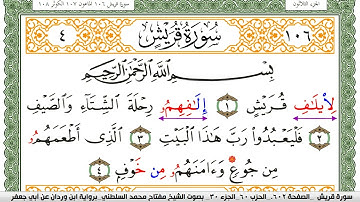 الجزء الثلاثون
سورة قريش ١٠٦ الماعون ١٠٧ الكوثر ١٠٨
١٠٦
سُورَةُ قُرَيْشٍ
٤
بِسْمِ اللَّهِ الرَّحْمَٰنِ الرَّحِيمِ
لِيلَٰفِ قُرَيْشٍ ١ إِلَٰفِهِمُۥ رِحْلَةَ الشِّتَآءِ وَالصَّيْفِ
٢ فَلْيَعْبُدُوا۟ رَبَّ هَٰذَا الْبَيْتِ ٣ الَّذِىٓ أَطْعَمَهُمُۥ
مِن جُوعٍ وَءَامَنَهُمُۥ مِن خَوْفٍ ٤
سورة قريش _ الصفحة ٦٠٢_ الحزب ٦٠_ الجزء ٣٠_ بصوت الشيخ مفتاح محمد السلطني_ برواية ابن وردان عن أبي جعفر